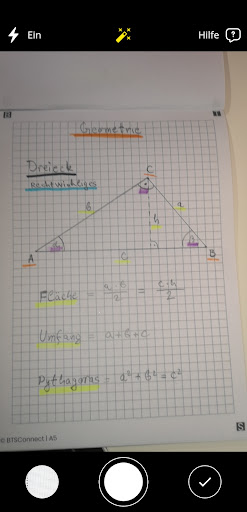 Ein
Hilfe
Geometrie
Dreieck
Rechtwinkliges
C
b
a
h
A
c
B
Fläche = a·b/2 = c·h/2
Umfang = a+b+c
Pythagoras = a² + b² = c²
© BTSConnect | A5
S